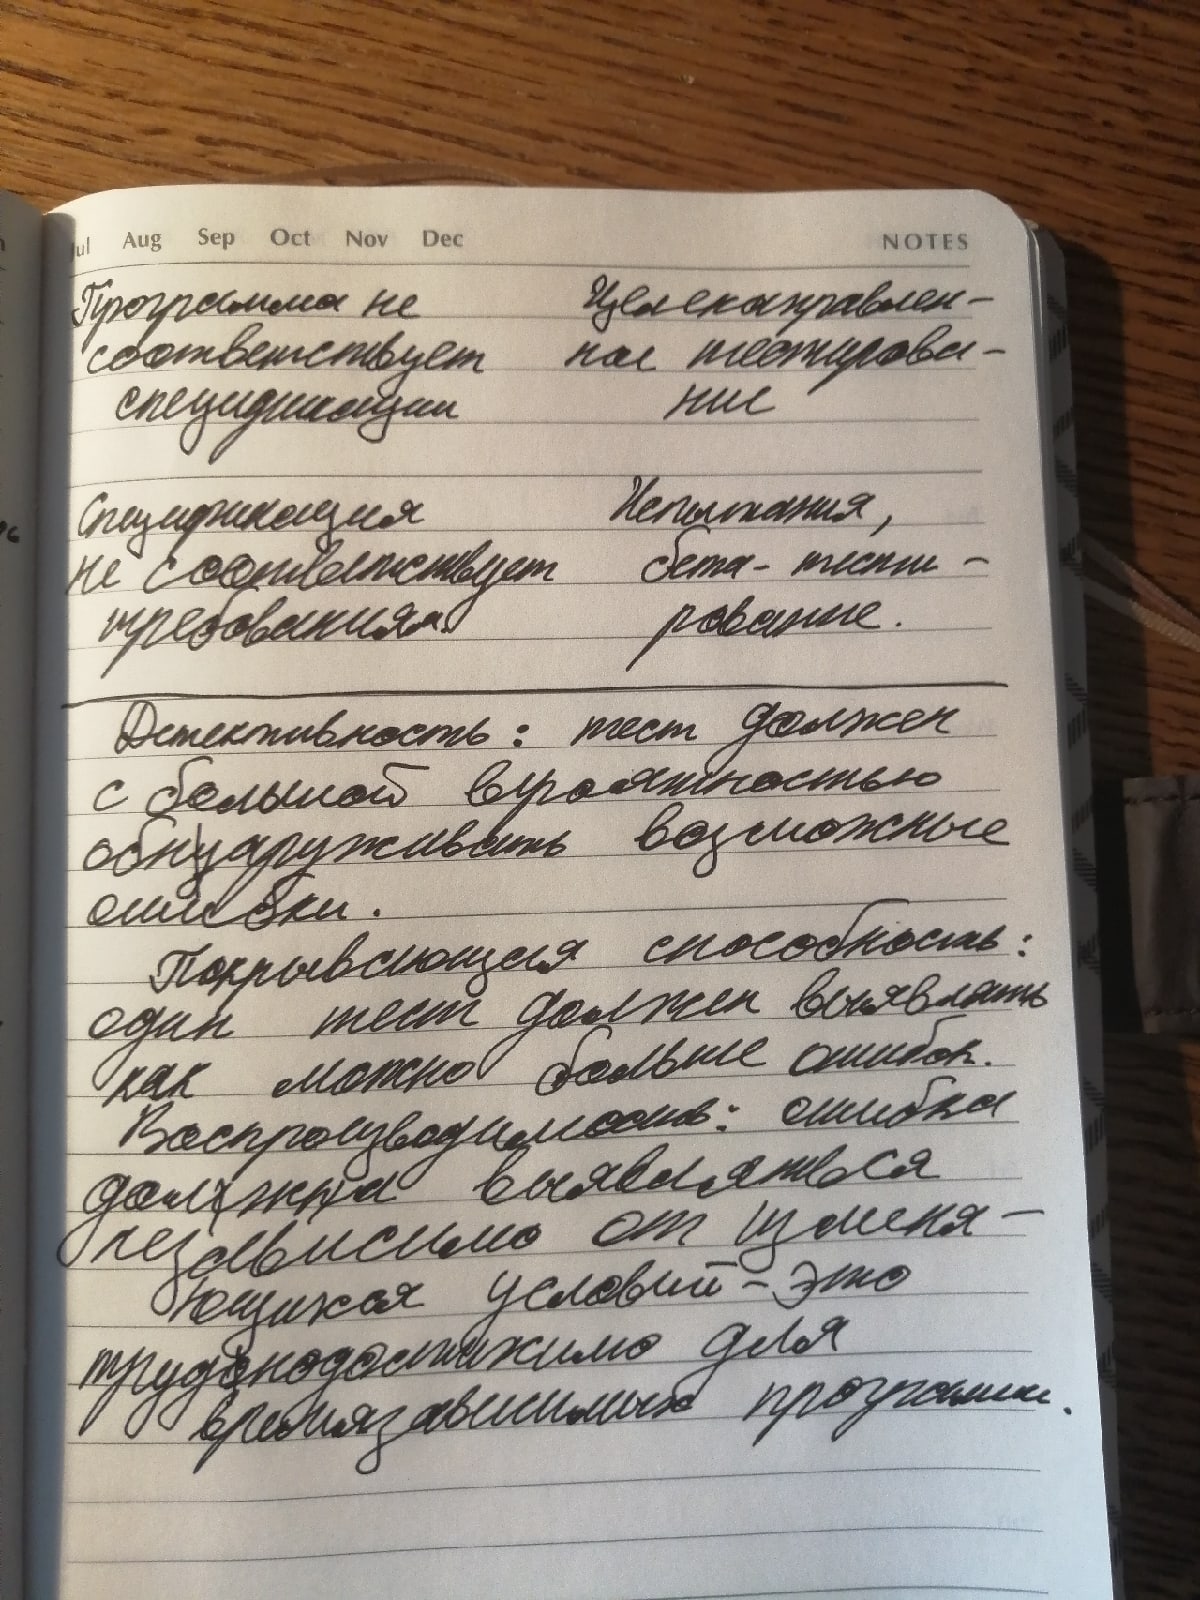 Jul Aug Sep Oct Nov Dec NOTES
Программа не Целенаправлен-
соответствует ное тестирова-
спецификации ние
Спецификация Испытания,
не соответствует бета-тести-
требованиям. рование.
Детективность: тест должен
с большой вероятностью
обнаруживать возможные
ошибки.
Покрывающая способность:
один тест должен выявлять
как можно больше ошибок.
Воспроизводимость: ошибка
должна выявляться
независимо от изменя-
ющихся условий - это
труднодостижимо для
времязависимых программ.